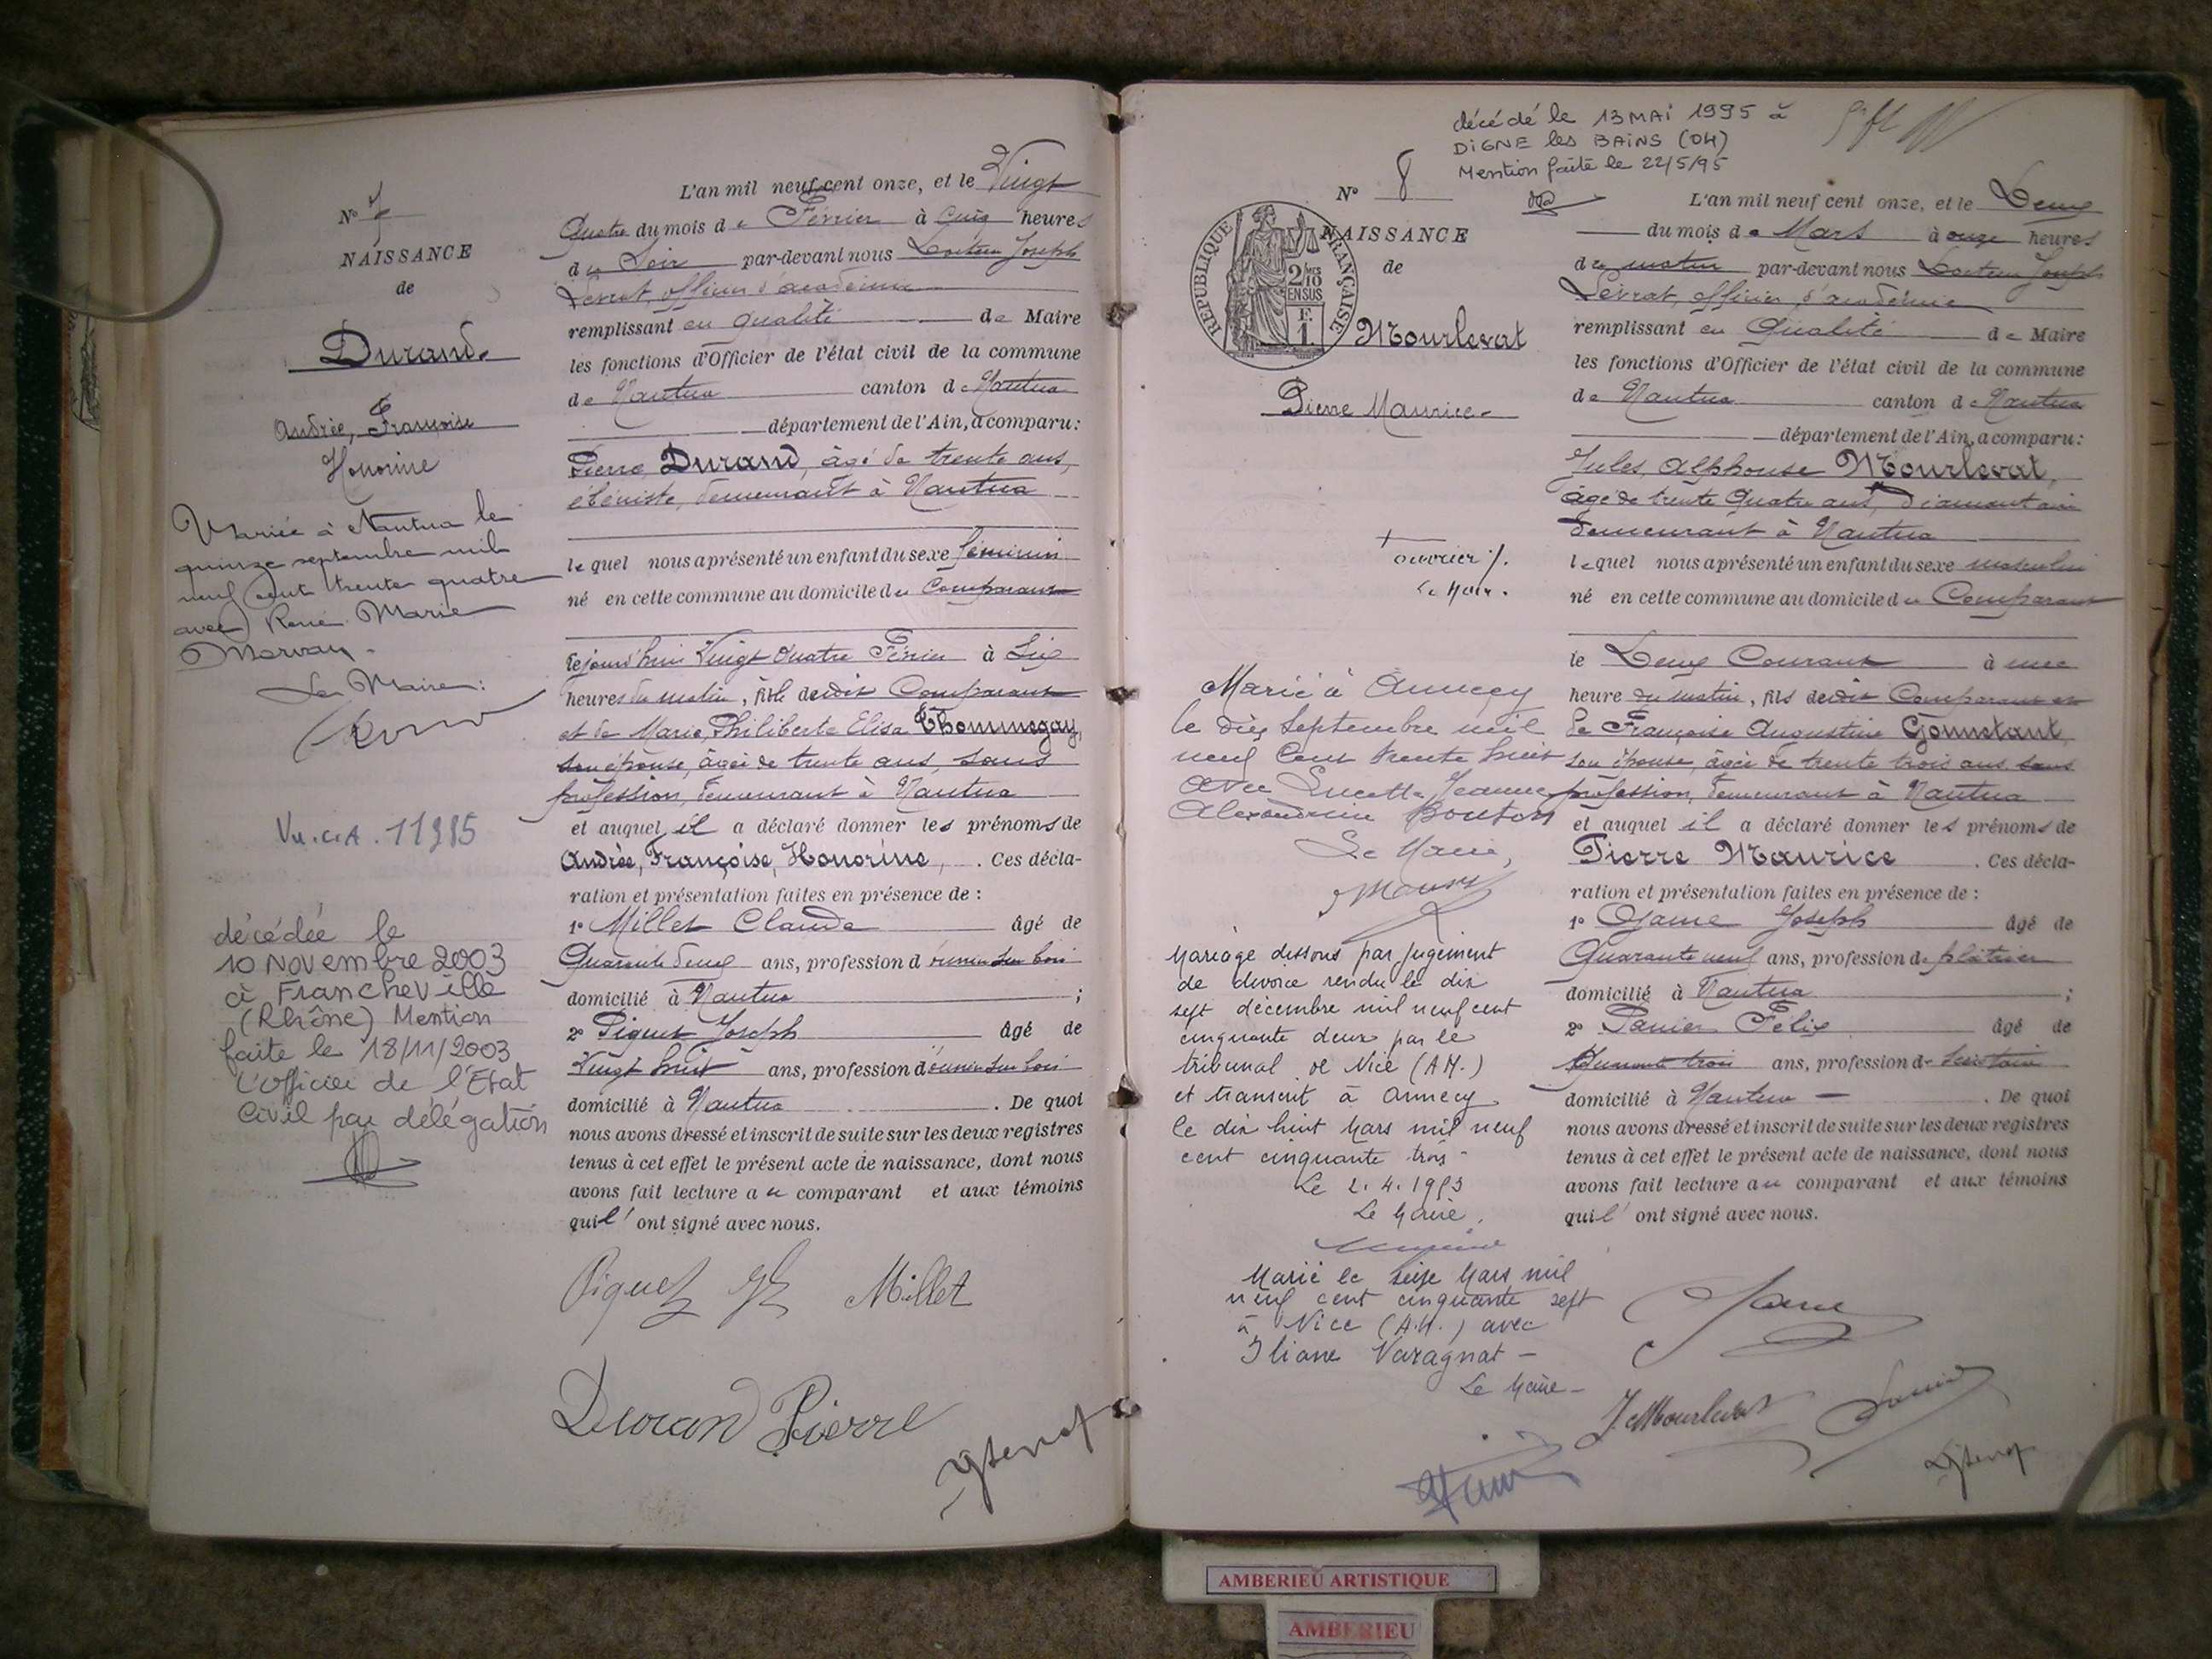 N° 7
NAISSANCE
de
Durand
Andrée, Françoise
Honorine
Mariée à Nantua le
quinze septembre mil
neuf cent trente quatre
avec René Marie
Morvan.
Le Maire:
Vu.C.A. 11985
décédée le
10 Novembre 2003
à Francheville
(Rhône) Mention
faite le 18/11/2003
L'officier de l'Etat
Civil par délégation
L'an mil neuf cent onze, et le Vingt
Quatre du mois de Février à Cinq heures
du Soir par-devant nous Docteur Joseph
Levrat, officier d'académie
remplissant en qualité de Maire
les fonctions d'Officier de l'état civil de la commune
de Nantua canton de Nantua
département de l'Ain, a comparu:
Pierre Durand, âgé de trente ans,
ébéniste, demeurant à Nantua
lequel nous a présenté un enfant du sexe féminin
né en cette commune au domicile du Comparant
le jourd'hui Vingt Quatre Février à Six
heures du matin, fille dudit Comparant
et de Marie, Philiberte Elisa Thommegay,
son épouse, âgée de trente ans, sans
profession, demeurant à Nantua
et auquel il a déclaré donner les prénoms de
Andrée, Françoise, Honorine, . Ces décla-
ration et présentation faites en présence de :
1° Millet Claude âgé de
Quarante deux ans, profession d'ouvrier sur bois
domicilié à Nantua ;
2° Piguet Joseph âgé de
Vingt huit ans, profession d'ouvrier sur bois
domicilié à Nantua . De quoi
nous avons dressé et inscrit de suite sur les deux registres
tenus à cet effet le présent acte de naissance, dont nous
avons fait lecture au comparant et aux témoins
qui l' ont signé avec nous.
Piguet Jh Millet
Durand Pierre
décédé le 13 MAI 1995 à
DIGNE les BAINS (04)
Mention faite le 22/5/95
N° 8
NAISSANCE
de
REPUBLIQUE FRANÇAISE
2/10 MES
EN SUS
F.
1.
Mourlevat
Pierre Maurice
ouvrier /.
Le Maire.
Marié à Annecy
le dix Septembre mil
neuf Cent trente huit
avec Lucette Jeanne
Alexandrine Bouton
Le Maire,
Mariage dissous par jugement
de divorce rendu le dix
sept décembre mil neuf cent
cinquante deux par le
tribunal de Nice (A.M.)
et transcrit à Annecy
le dix huit Mars mil neuf
cent cinquante trois -
Le 2.4.1953
Le Maire,
Marié le seize Mars mil
neuf cent cinquante sept
à Nice (A.M.) avec
Iliane Varagnat -
Le Maire -
L'an mil neuf cent onze, et le Deux
du mois de Mars à onze heures
du matin par-devant nous Docteur Joseph
Levrat, officier d'académie
remplissant en Qualité de Maire
les fonctions d'Officier de l'état civil de la commune
de Nantua canton de Nantua
département de l'Ain, a comparu:
Jules, Alphonse Mourlevat,
âgé de trente Quatre ans, Diamantaire
demeurant à Nantua
lequel nous a présenté un enfant du sexe masculin
né en cette commune au domicile du Comparant
le Deux Courant à une
heure du matin, fils dudit Comparant et
de Françoise Augustine Gonnetant,
son épouse, âgée de trente trois ans sans
profession, demeurant à Nantua
et auquel il a déclaré donner les prénoms de
Pierre Maurice . Ces décla-
ration et présentation faites en présence de :
1° Joseph âgé de
Quarante neuf ans, profession de plâtrier
domicilié à Nantua ;
2° Panier Félix âgé de
trois ans, profession de
domicilié à Nantua . De quoi
nous avons dressé et inscrit de suite sur les deux registres
tenus à cet effet le présent acte de naissance, dont nous
avons fait lecture au comparant et aux témoins
qui l' ont signé avec nous.
J. Mourlevat
AMBERIEU ARTISTIQUE
AMBERIEU